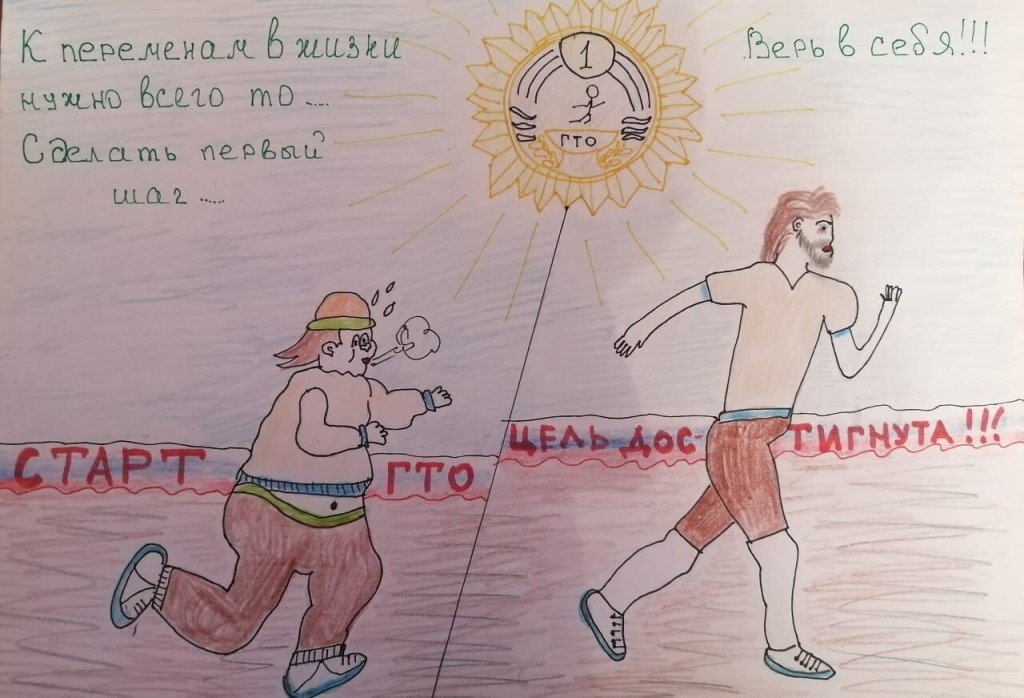 К переменам в жизни
нужно всего то.....
Сделать первый
шаг.....
Верь в себя!!!
1
ГТО
СТАРТ ГТО
ЦЕЛЬ ДОС-ТИГНУТА!!!